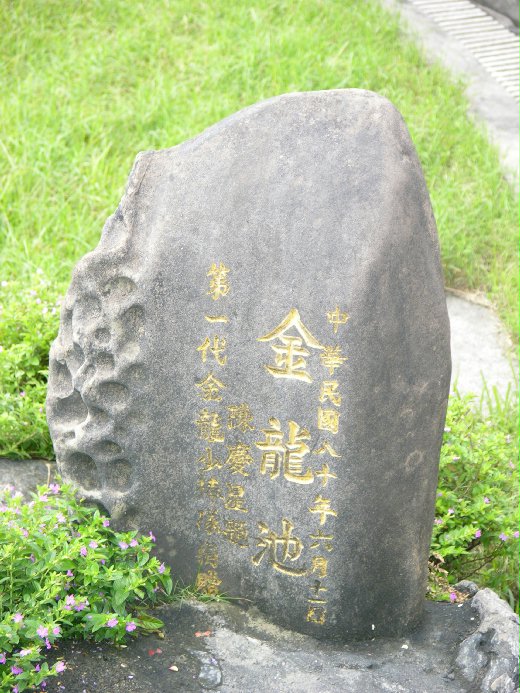 中華民國八十年六月十二
金龍池
慶星
第一代金龍少棒隊